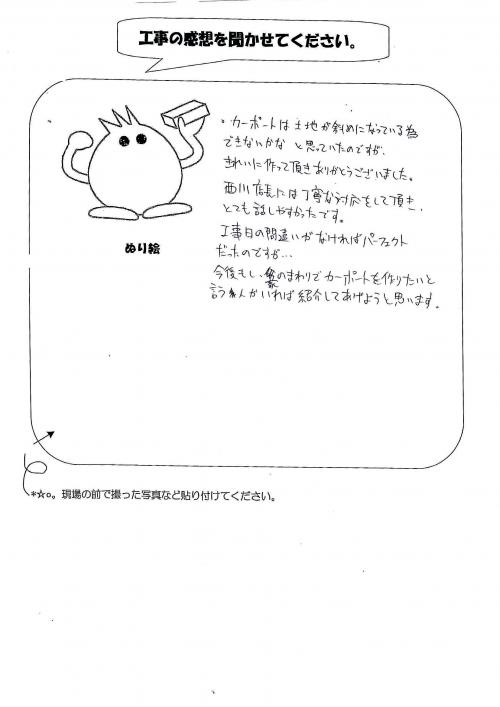 工事の感想を聞かせてください。
・カーポートは土地が斜めになっている為
できないかな と思っていたのですが、
きれいに作って頂きありがとうございました。
西川店長には丁寧な対応をして頂き、
とても話しやすかったです。
工事日の間違いがなければパーフェクト
だったのですが…
今後もし、家のまわりでカーポートを作りたいと
言う人がいれば紹介してあげようと思います。
ぬり絵
*☆○。現場の前で撮った写真など貼り付けてください。